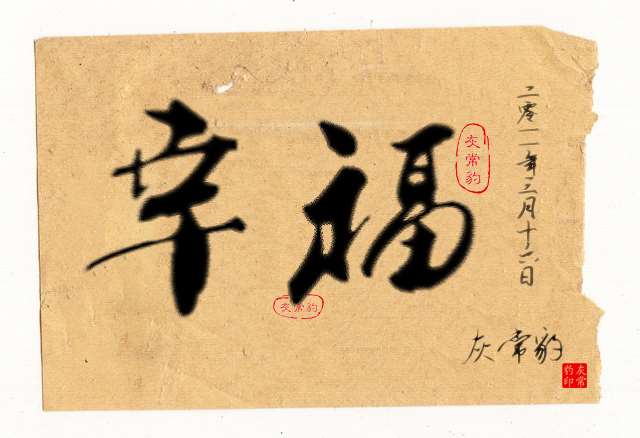 幸福
灰常豹
灰常豹
二零一一年二月十六日
灰常豹
灰常豹印